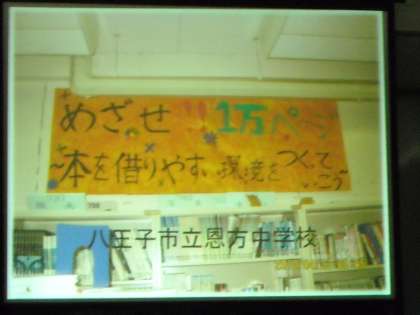 めざせ!! 1万ページ
~本を借りやすい環境をつくって
いこう
八王子市立恩方中学校